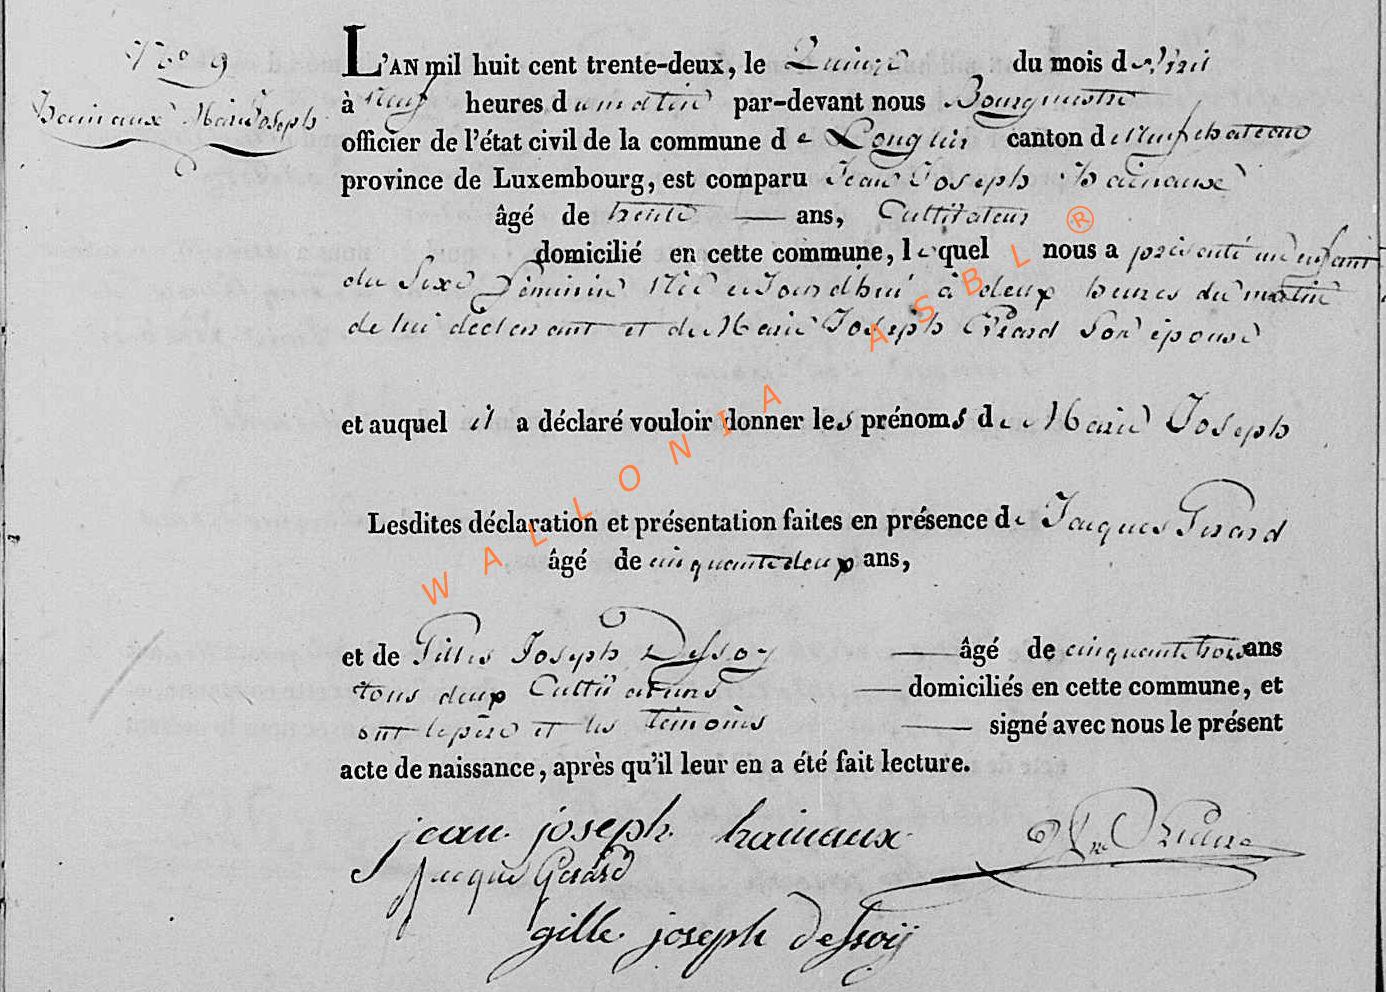 N° 9
hainaux Marie Joseph
L'AN mil huit cent trente-deux, le Quinze du mois d'avril
à neuf heures du matin par-devant nous Bourgmestre
officier de l'état civil de la commune de Longlier canton de neufchateau
province de Luxembourg, est comparu Jean Joseph hainaux
âgé de trente ans, Cultivateur
domicilié en cette commune, lequel nous a présenté un enfant
du Sexe féminin née aujourdhui à deux heures du matin
de lui déclarant et de Marie Joseph Gérard Son épouse
et auquel il a déclaré vouloir donner les prénoms de Marie Joseph
Lesdites déclaration et présentation faites en présence de Jacques Gérard
âgé de cinquante deux ans,
et de Gilles Joseph Dessoy âgé de cinquante trois ans
tous deux Cultivateurs domiciliés en cette commune, et
ont le père et les témoins signé avec nous le présent
acte de naissance, après qu'il leur en a été fait lecture.
jean joseph hainaux
jacques Gerard
gille joseph dessoij
WALLONIA ASBL ®